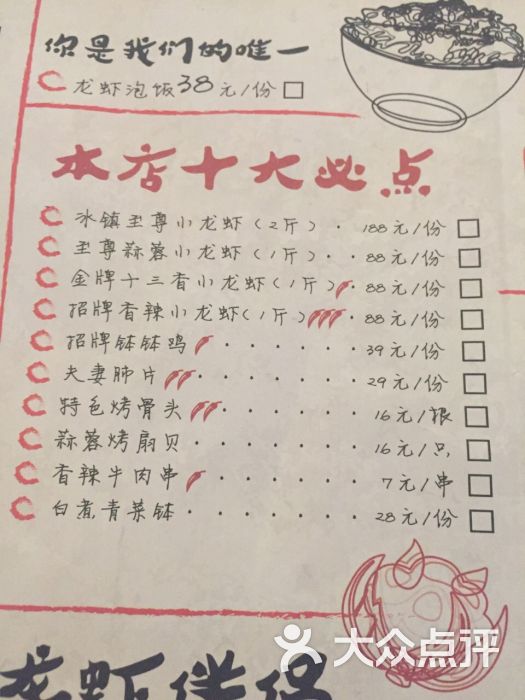 你是我们的唯一
龙虾泡饭38元/份
本店十大必点
冰镇至尊小龙虾(2斤)·188元/份
至尊蒜蓉小龙虾(1斤)··88元/份
金牌十三香小龙虾(1斤)·88元/份
招牌香辣小龙虾(1斤)·88元/份
招牌钵钵鸡······39元/份
夫妻肺片······29元/份
特色烤骨头······16元/根
蒜蓉烤扇贝·······16元/只
香辣牛肉串······7元/串
白煮青菜钵·······28元/份
龙虾伴侣
大众点评